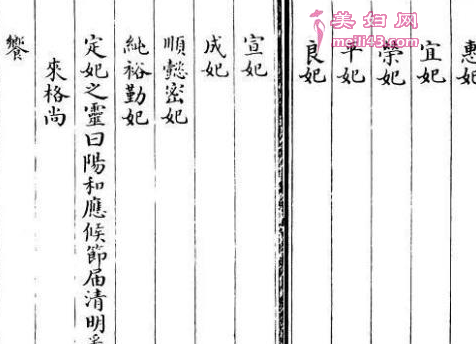 美妇网
meifu43.com
惠妃
宜妃
榮妃
平妃
良妃
宣妃
成妃
順懿密妃
純裕勤妃
定妃之靈曰陽和應候節届清明
來格尚
饗